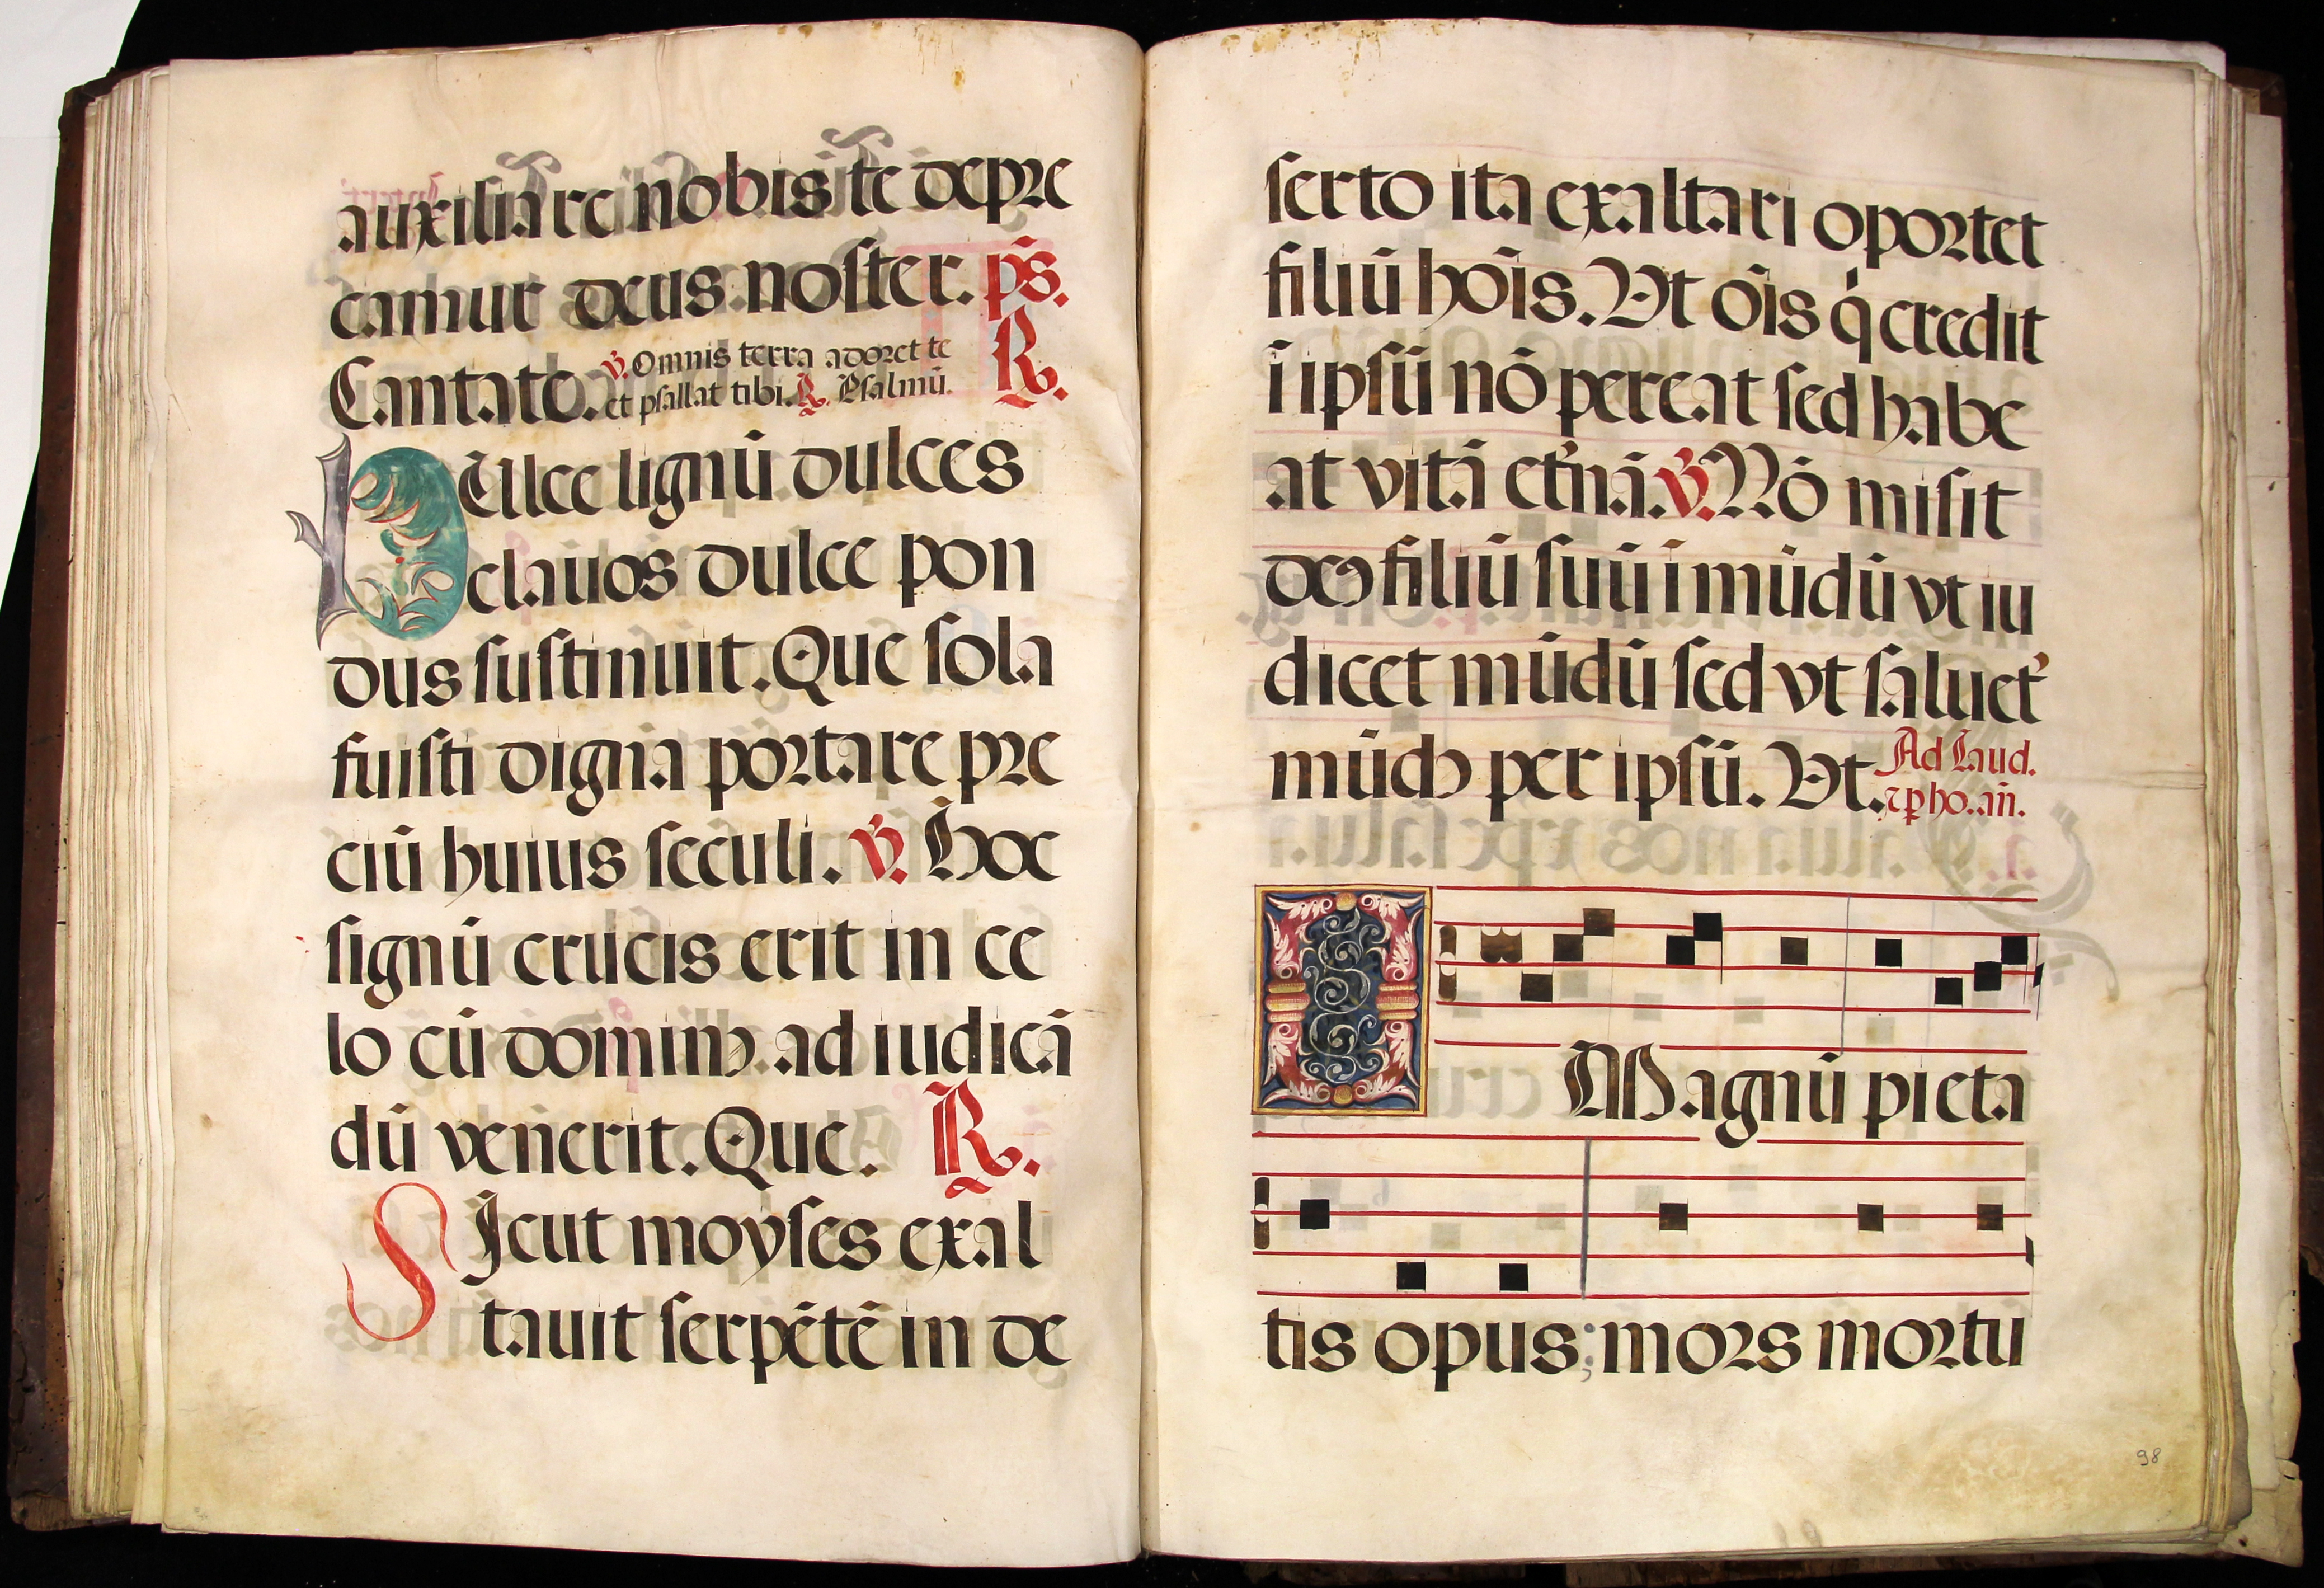 auxiliare nobis te depre
camur deus noster. ps̄.
Cantate. ℣. Omnis terra adoret te
et psallat tibi. ℟. Psalmū. ℟.
DUlce lignū dulces
clauos dulce pon
dus sustinuit. Que sola
fuisti digna portare pre
ciū huius seculi. ℣. Hoc
signū crucis erit in ce
lo cū domino ad iudicā
dū venerit. Que. ℟.
SIcut moyses exal
tauit serpētē in de
serto ita exaltari oportet
filiū hōis. Vt ōis q̇ credit
ī ipsū nō pereat sed habe
at vitā et̓nā. ℣. Nō misit
deꝰ filiū suū ī mūdū vt iu
dicet mūdū sed vt saluet̓
mūdꝰ per ipsū. Vt. Ad Laud.
⁊ p̱ ho. añ.
O Magnū pieta
tis opus; mors mortu
98